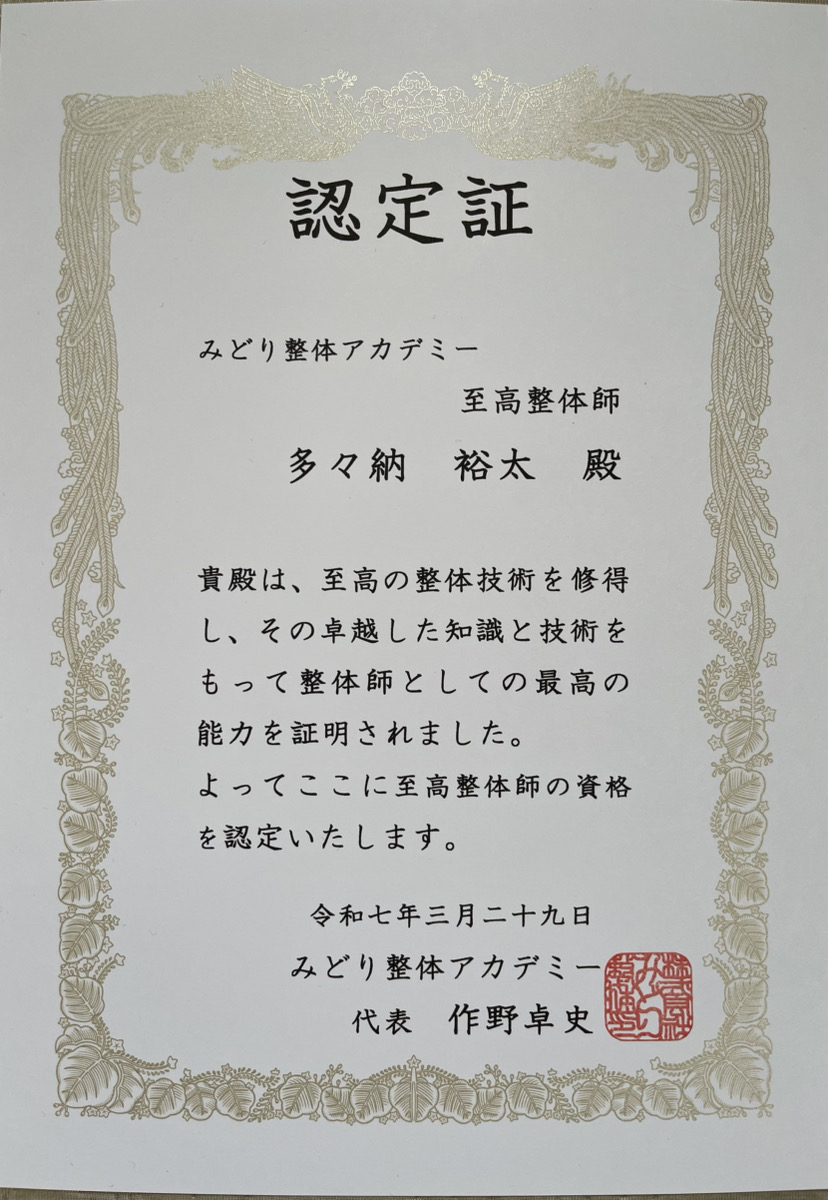 認定証
みどり整体アカデミー
至高整体師
多々納 裕太 殿
貴殿は、至高の整体技術を修得
し、その卓越した知識と技術を
もって整体師としての最高の
能力を証明されました。
よってここに至高整体師の資格
を認定いたします。
令和七年三月二十九日
みどり整体アカデミー
代表 作野卓史